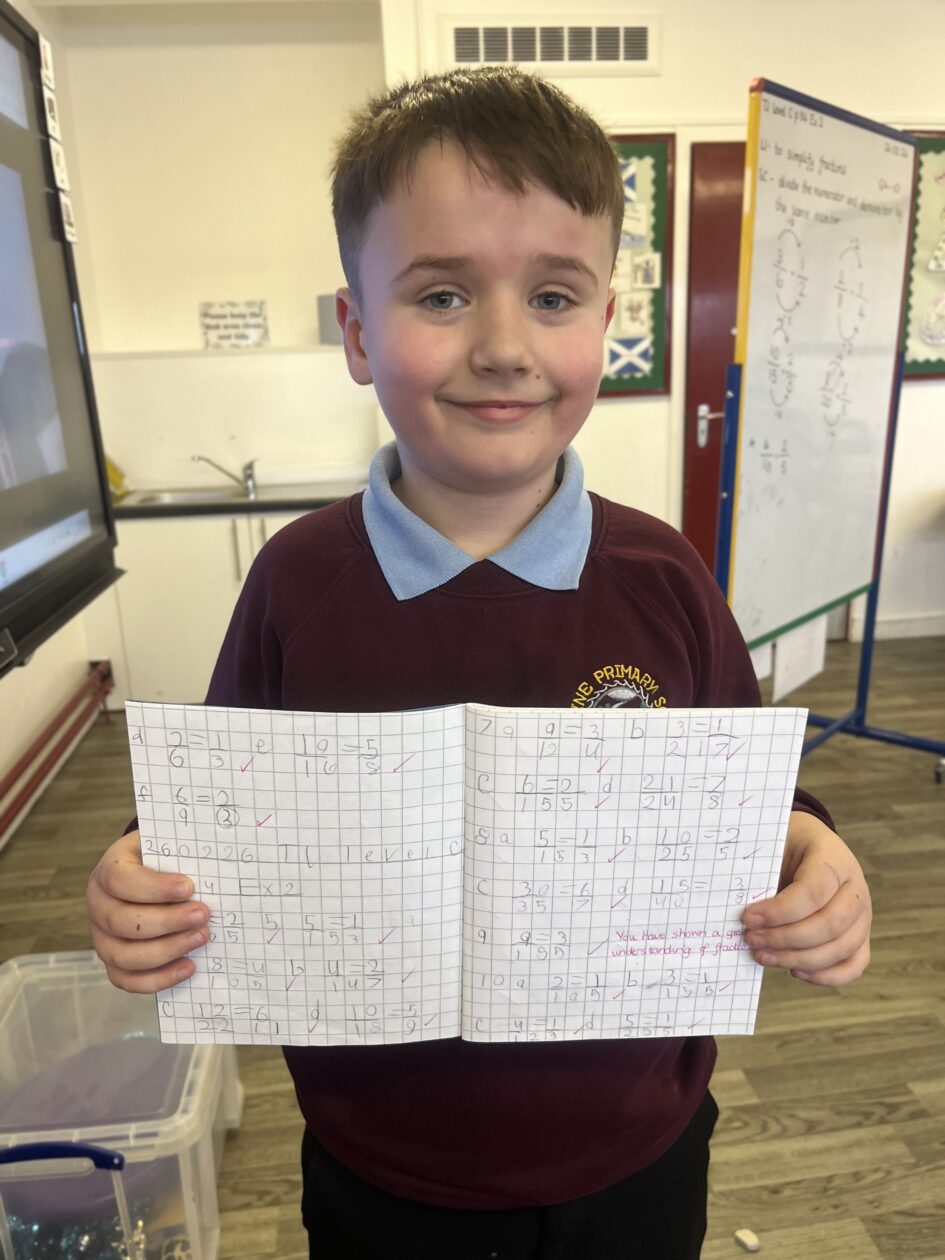 TJ Level C p 84 Ex 2
LI - to simplify fractions
SC - divide the numerator and denominator by
the same number
4/10 = 2/5
Please keep the
sink area clean
and tidy
NE PRIMARY S
d 2/6 = 1/3 ✓ e 10/16 = 5/8 ✓
f 6/9 = 2/3 ✓
260226 TJ level C
Ex 2
= 2/5 ✓ 5 5/15 = 1/3 ✓
8/10 = 4/5 ✓ b 4/14 = 2/7 ✓
c 12/22 = 6/11 ✓ d 10/18 = 5/9 ✓
7 a 9/12 = 3/4 ✓ b 3/21 = 1/7 ✓
c 6/15 = 2/5 ✓ d 21/24 = 7/8 ✓
8 a 5/15 = 1/3 ✓ b 10/25 = 2/5 ✓
c 30/35 = 6/7 ✓ d 15/40 = 3/8 ✓
9 9/15 = 3/5 ✓ You have shown a
understanding of
10 a 2/10 = 1/5 ✓ b 3/15 = 1/5 ✓
c 4/12 = 1/3 ✓ d 5/25 = 1/5 ✓